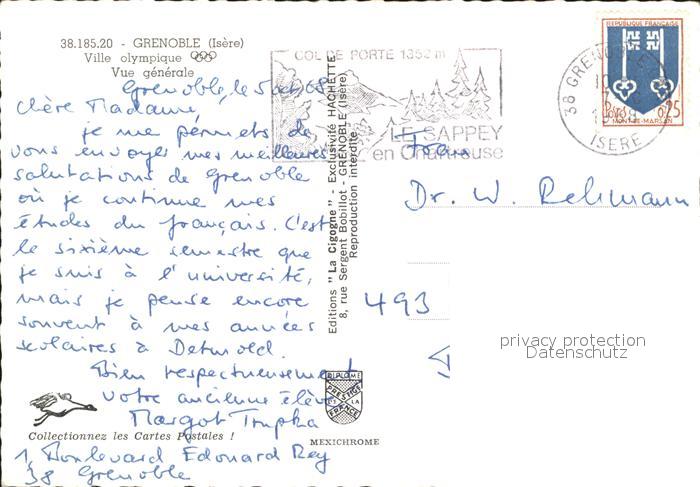 38.185.20 - GRENOBLE (Isère)
Ville olympique
Vue générale
Grenoble, le 5 oct 68
Chère Madame,
je me permets de
vous envoyer mes meilleures
salutations de Grenoble
où je continue mes
études du français. C'est
le sixième semestre que
je suis à l'université,
mais je pense encore
souvent à mes années
scolaires à Detmold.
Bien respectueusement
votre ancienne élève
Margot Trupka
Collectionnez les Cartes Postales !
1, Boulevard Edouard Rey
38 Grenoble
Editions "La Cigogne" - Exclusivité HACHETTE
8, rue Sergent Bobillot - GRENOBLE (Isère)
Reproduction interdite
DIPLOME
PRESTIGE
DE LA
FRANCE
MEXICHROME
COL DE PORTE 1352 m
LE SAPPEY
en Chartreuse
38 GRENOBLE
ISERE
REPUBLIQUE FRANÇAISE
Postes 0,25
MONT-DE-MARSAN
Frau
Dr. W. Rehmann
493
privacy protection
Datenschutz